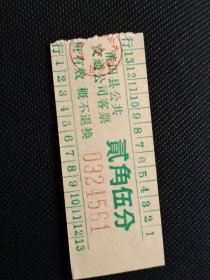 县公共
交通公司客票
贰角伍分
有效 概不退换
0324561
行13 12 11 10 9 8 7 6 5 4 3 2 1
行1 2 3 4 5 6 7 8 9 10 11 12 13